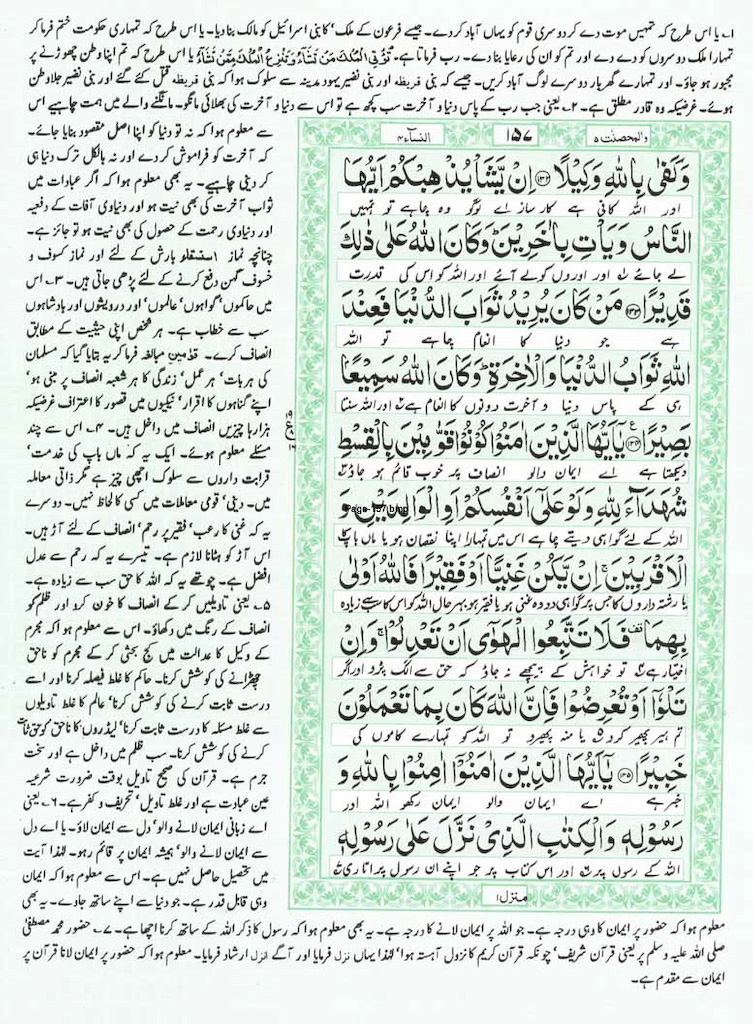 ۱؎ یا اس طرح کہ تمہیں موت دے کر دوسری قوم کو یہاں آباد کر دے۔ جیسے فرعون کے ملک کا بنی اسرائیل کو مالک بنا دیا۔ یا اس طرح کہ تمہاری حکومت ختم فرما کر
تمہارا ملک دوسروں کو دے دے اور تم کو ان کی رعایا بنا دے۔ رب فرماتا ہے۔ تُؤْتِی الْمُلْکَ مَنْ تَشَآءُ وَتَنْزِعُ الْمُلْکَ مِمَّنْ تَشَآءُ یا اس طرح کہ تم اپنا وطن چھوڑنے پر
مجبور ہو جاؤ۔ اور تمہارے گھر بار دوسرے لوگ آباد کریں۔ جیسے کہ بنی قریظہ اور بنی نضیر یہود مدینہ سے سلوک ہوا کہ بنی قریظہ قتل کئے گئے اور بنی نضیر جلا وطن
ہوئے۔ غرضیکہ وہ قادر مطلق ہے۔ ۲؎ یعنی جب رب کے پاس دنیا و آخرت سب کچھ ہے تو اس سے دنیا و آخرت کی بھلائی مانگو۔ مانگنے والے میں ہمت چاہیے اس
والمحصنت ۵
۱۵۷
النسآء ۴
وَكَفٰى بِاللّٰهِ وَكِيْلًا ﴿۱۳۲﴾ اِنْ يَّشَاْ يُذْهِبْكُمْ اَيُّهَا
اور اللہ کافی ہے کارساز اے لوگو وہ چاہے تو تمہیں
النَّاسُ وَيَاْتِ بِاٰخَرِيْنَ ؕ وَكَانَ اللّٰهُ عَلٰى ذٰلِكَ
لے جائے ۱؎ اور اوروں کو لے آئے اور اللہ کو اس کی قدرت
قَدِيْرًا ﴿۱۳۳﴾ مَنْ كَانَ يُرِيْدُ ثَوَابَ الدُّنْيَا فَعِنْدَ
ہے جو دنیا کا انعام چاہے تو اللہ
اللّٰهِ ثَوَابُ الدُّنْيَا وَالْاٰخِرَةِ ؕ وَكَانَ اللّٰهُ سَمِيْعًۢا
ہی کے پاس دنیا و آخرت دونوں کا انعام ہے ۲؎ اور اللہ سنتا
بَصِيْرًا ﴿۱۳۴﴾ يٰۤاَيُّهَا الَّذِيْنَ اٰمَنُوْا كُوْنُوْا قَوّٰمِيْنَ بِالْقِسْطِ
دیکھتا ہے اے ایمان والو انصاف پر خوب قائم ہو جاؤ ۳؎
شُهَدَآءَ لِلّٰهِ وَلَوْ عَلٰۤى اَنْفُسِكُمْ اَوِ الْوَالِدَيْنِ وَ
Page-157.bmp
اللہ کے لئے گواہی دیتے چاہے اس میں تمہارا اپنا نقصان ہو یا ماں باپ کا
الْاَقْرَبِيْنَ ۚ اِنْ يَّكُنْ غَنِيًّا اَوْ فَقِيْرًا فَاللّٰهُ اَوْلٰى
یا رشتہ داروں کا جس پر گواہی دو وہ غنی ہو یا فقیر ہو بہرحال اللہ کو اس کا سب سے زیادہ
بِهِمَا ۫ فَلَا تَتَّبِعُوا الْهَوٰۤى اَنْ تَعْدِلُوْا ۚ وَاِنْ
اختیار ہے ۴؎ تو خواہش کے پیچھے نہ جاؤ کہ حق سے الگ پڑو اور اگر
تَلْوٗۤا اَوْ تُعْرِضُوْا فَاِنَّ اللّٰهَ كَانَ بِمَا تَعْمَلُوْنَ
تم ہیر پھیر کرو ۵؎ یا منہ پھیرو تو اللہ کو تمہارے کاموں کی
خَبِيْرًا ﴿۱۳۵﴾ يٰۤاَيُّهَا الَّذِيْنَ اٰمَنُوْۤا اٰمِنُوْا بِاللّٰهِ وَ
خبر ہے اے ایمان والو ایمان رکھو اللہ اور
رَسُوْلِهٖ وَالْكِتٰبِ الَّذِيْ نَزَّلَ عَلٰى رَسُوْلِهٖ
اللہ کے رسول پر ۶؎ اور اس کتاب پر جو اپنے ان رسول پر اتاری ۷؎
منزل ۱
سے معلوم ہوا کہ نہ تو دنیا کو اپنا اصل مقصود بنایا جائے۔
کہ آخرت کو فراموش کر دے اور نہ بالکل ترک دنیا ہی
کر دینی چاہیے۔ یہ بھی معلوم ہوا کہ اگر عبادات میں
ثواب آخرت کی بھی نیت ہو اور دنیاوی آفات کے دفعیہ
اور دنیاوی رحمت کے حصول کی بھی نیت ہو تو جائز ہے۔
چنانچہ نماز استسقاء بارش کے لئے اور نماز کسوف و
خسوف گہن دفع کرنے کے لئے پڑھی جاتی ہیں۔ ۳؎ اس
میں حاکموں، گواہوں، عالموں، اور درویشوں اور بادشاہوں
سب سے خطاب ہے۔ ہر شخص اپنی حیثیت کے مطابق
انصاف کرے۔ قوّٰمین مبالغہ فرما کر یہ بتایا گیا کہ مسلمان
کی ہر بات، ہر عمل، زندگی کا ہر شعبہ انصاف پر مبنی ہو،
اپنے گناہوں کا اقرار، نیکیوں میں قصور کا اعتراف غرضیکہ
ہزارہا چیزیں انصاف میں داخل ہیں۔ ۴؎ اس سے چند
مسئلے معلوم ہوئے۔ ایک یہ کہ ماں باپ کی خدمت،
قرابت داروں سے سلوک اچھی چیز ہے مگر ذاتی معاملہ
میں۔ دینی، قومی معاملات میں کسی کا لحاظ نہیں۔ دوسرے
یہ کہ غنی کا رعب، فقیر پر رحم، انصاف کے لئے آڑ ہیں۔
اس آڑ کو ہٹانا لازم ہے۔ تیسرے یہ کہ رحم سے عدل
افضل ہے۔ چوتھے یہ کہ اللہ کا حق سب سے زیادہ ہے۔
۵؎ یعنی تاویلیں کر کے انصاف کا خون کرو اور ظلم کو
انصاف کے رنگ میں دکھاؤ۔ اس سے معلوم ہوا کہ مجرم
کے وکیل کا عدالت میں کج بحثی کر کے مجرم کو ناحق
چھڑانے کی کوشش کرنا۔ حاکم کا غلط فیصلہ کرنا اور اسے
درست ثابت کرنے کی کوشش کرنا، عالم کا غلط تاویلوں
سے غلط مسئلہ کا درست ثابت کرنا، لیڈروں کا ناحق کو حق ثابت
کرنے کی کوشش کرنا۔ سب ظلم میں داخل ہے اور سخت
جرم ہے۔ قرآن کی صحیح تاویل بوقت ضرورت شرعیہ
عین عبادت ہے اور غلط تاویل، تحریف و کفر ہے۔ ۶؎ یعنی
اے زبانی ایمان لانے والو، دل سے ایمان لاؤ۔ یا اے دل
سے ایمان لانے والو، ہمیشہ ایمان پر قائم رہو۔ لہٰذا آیت
میں تحصیل حاصل نہیں ہے۔ اس سے معلوم ہوا کہ ایمان
وہی قابل قدر ہے۔ جو دنیا سے اپنے ساتھ جاوے۔ یہ بھی
معلوم ہوا کہ حضور پر ایمان کا وہی درجہ ہے۔ جو اللہ پر ایمان لانے کا درجہ ہے۔ یہ بھی معلوم ہوا کہ رسول کا ذکر اللہ کے ساتھ کرنا اچھا ہے۔ ۷؎ حضور محمد مصطفیٰ
صلی اللہ علیہ وسلم پر یعنی قرآن شریف، چونکہ قرآن کریم کا نزول آہستہ ہوا، لہٰذا یہاں نزل فرمایا اور آگے انزل ارشاد فرمایا۔ معلوم ہوا کہ حضور پر ایمان لانا قرآن پر
ایمان سے مقدم ہے۔